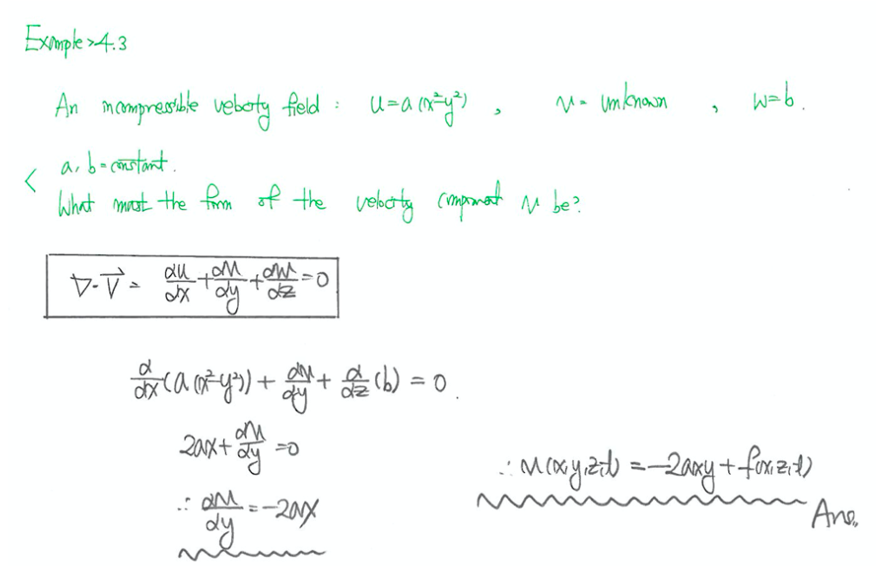 Example>4.3
An incompressible velocity field : u=a(x²-y²) , v= unknown , w=b.
a, b=constant.
< What must the form of the velocity component v be?
∇·V⃗ = du/dx + dv/dy + dw/dz = 0
d/dx (a(x²-y²)) + dv/dy + d/dz (b) = 0.
2ax + dv/dy = 0
∴ dv/dy = -2ax
∴ v(x,y,z,t) = -2axy + f(x,z,t)
Ans.